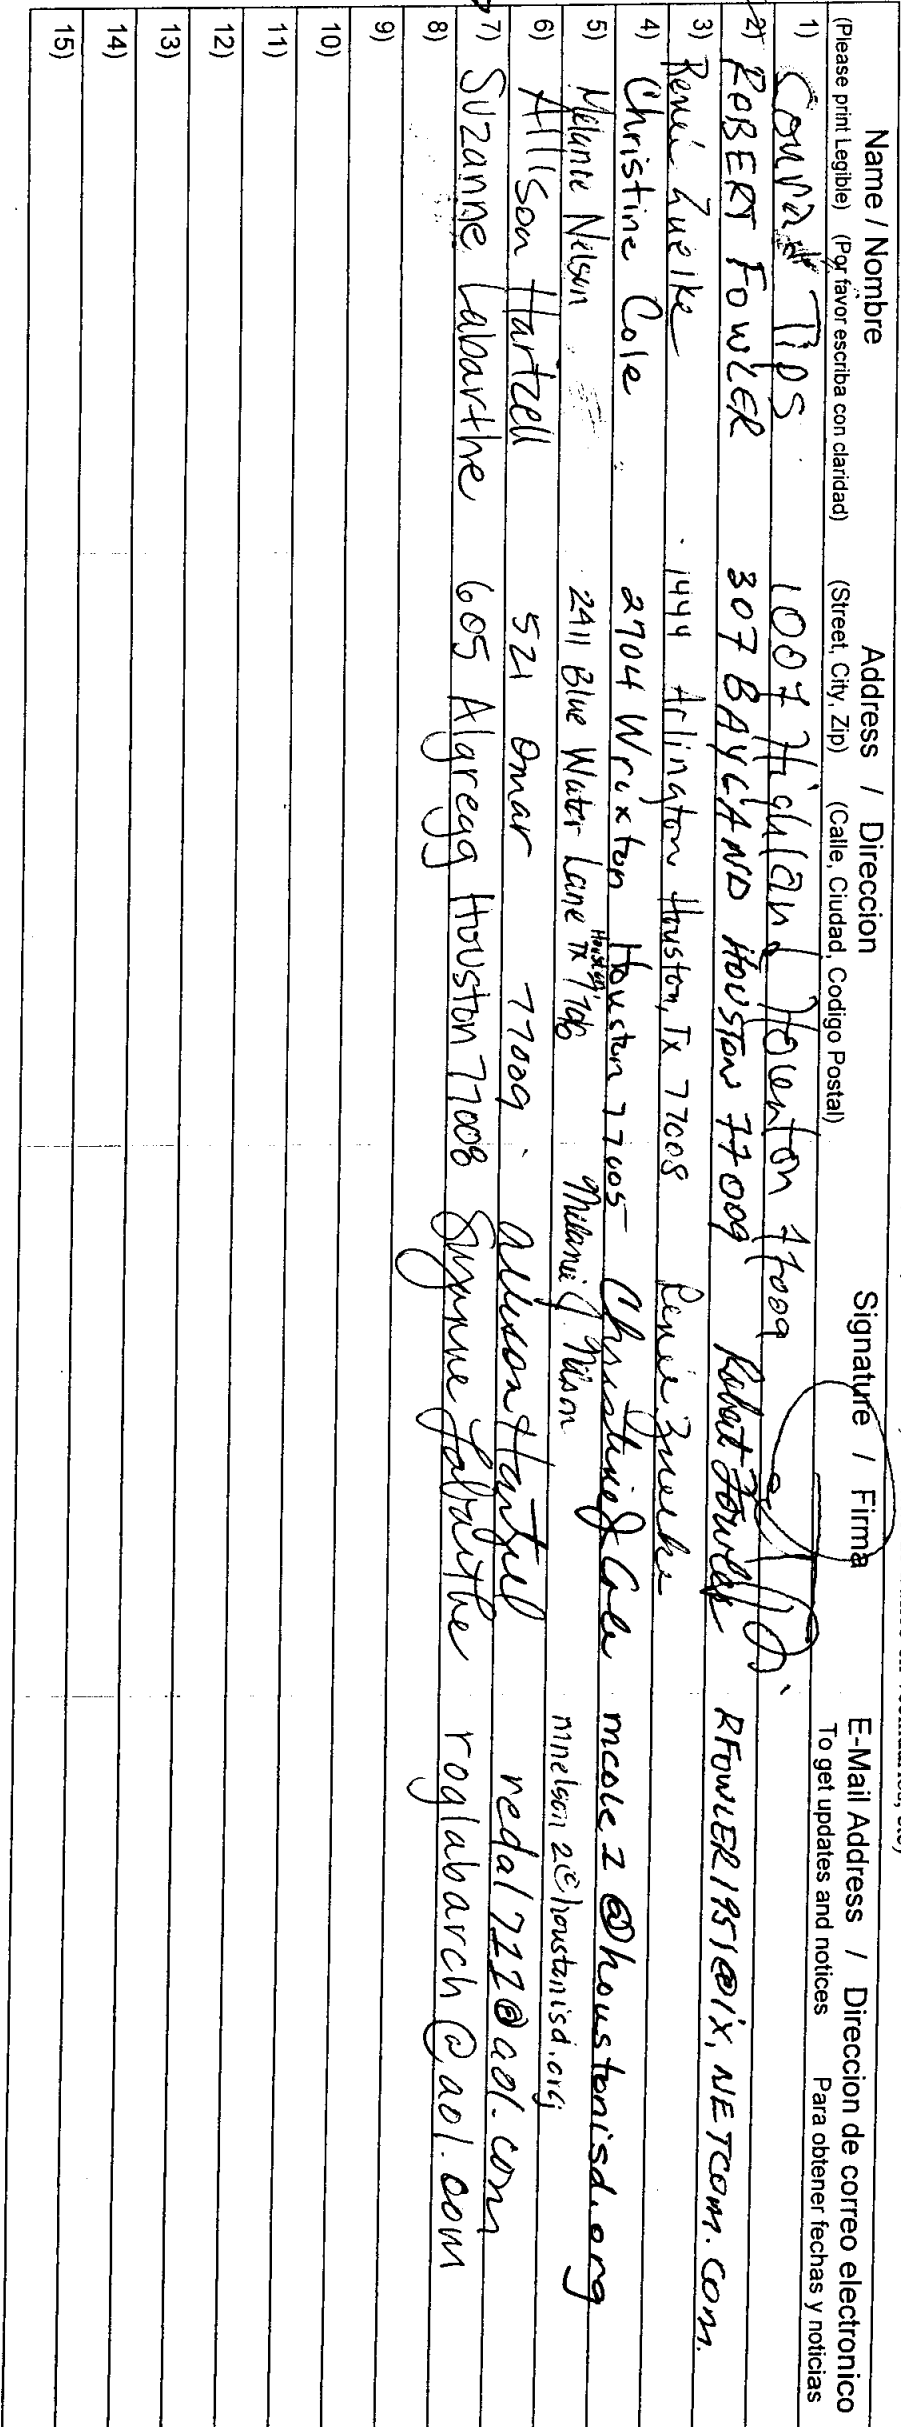 Name / Nombre Address / Direccion Signature / Firma E-Mail Address / Direccion de correo electronico
(Please print Legible) (Por favor escriba con claridad) (Street, City, Zip) (Calle, Ciudad, Codigo Postal) To get updates and notices Para obtener fechas y noticias
1) Conrad Tips 1007 Highland Houston 77009
2) ROBERT FOWLER 307 BAYLAND HOUSTON 77009 Robert Fowler RFOWLER1951@IX.NETCOM.COM.
3) Renee Zuelke 1444 Arlington Houston, Tx 77008 Renee Zuelke
4) Christine Cole 2704 Wroxton Houston 77005 Christine J Cole mcole2@houstonisd.org
5) Melanie Nelson 2411 Blue Water Lane Houston, TX Melanie J. Nelson mnelson2@houstonisd.org
6) Allison Hartzell 521 Omar 77009 Allison Hartzell redal711@aol.com
7) Suzanne Labarthe 605 Algregg Houston 77008 Suzanne Labarthe roglabarch@aol.com
8)
9)
10)
11)
12)
13)
14)
15)